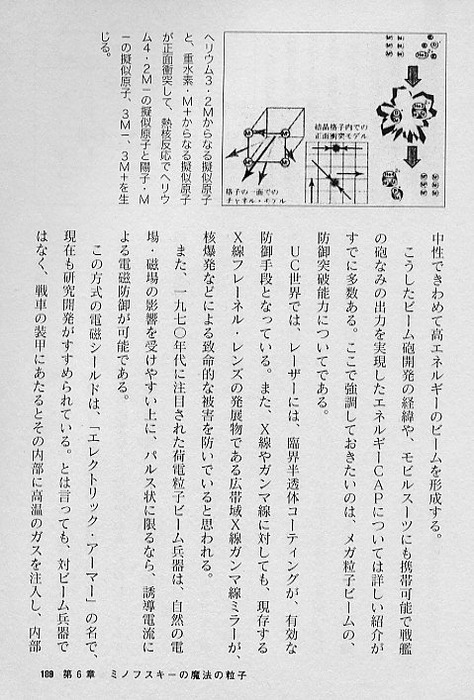 ヘリウム3・2Mからなる擬似原子
と、重水素・M+からなる擬似原子
が正面衝突して、熱核反応でヘリウ
ム4・2M−の擬似原子と陽子・M
−の擬似原子、3M−、3M+を生
じる。
結晶格子内での
正面衝突モデル
格子の一面での
チャネル・モデル
中性できわめて高エネルギーのビームを形成する。
こうしたビーム砲開発の経緯や、モビルスーツにも携帯可能で戦艦
の砲なみの出力を実現したエネルギーCAPについては詳しい紹介が
すでに多数ある。ここで強調しておきたいのは、メガ粒子ビームの、
防御突破能力についてである。
UC世界では、レーザーには、臨界半透体コーティングが、有効な
防御手段となっている。また、X線やガンマ線に対しても、現存する
X線フレーネル・レンズの発展物である広帯域X線ガンマ線ミラーが、
核爆発などによる致命的な被害を防いでいると思われる。
また、一九七〇年代に注目された荷電粒子ビーム兵器は、自然の電
場・磁場の影響を受けやすい上に、パルス状に限るなら、誘導電流に
よる電磁防御が可能である。
この方式の電磁シールドは、「エレクトリック・アーマー」の名で、
現在も研究開発がすすめられている。とは言っても、対ビーム兵器で
はなく、戦車の装甲にあたるとその内部に高温のガスを注入し、内部
189 第6章 ミノフスキーの魔法の粒子